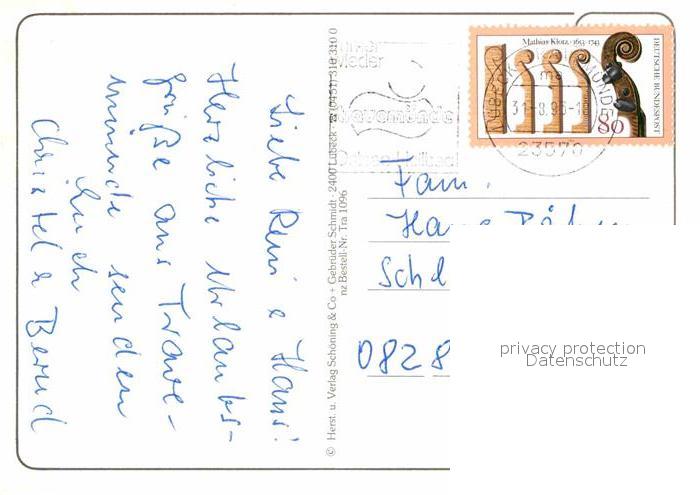 Liebe Resi & Hans!
Herzliche Urlaubs-
grüße aus Trave-
münde senden
Euch
Christel & Bernd
© Herst. u. Verlag Schöning & Co + Gebrüder Schmidt · 2400 Lübeck · ☎ (0451) 310 310 0
nz Bestell-Nr. Tra 1096
wieder
Travemünde
Mathias Klotz · 1653-1743
DEUTSCHE BUNDESPOST
80
23570
Fam.
Hans
Sch
0828
privacy protection
Datenschutz